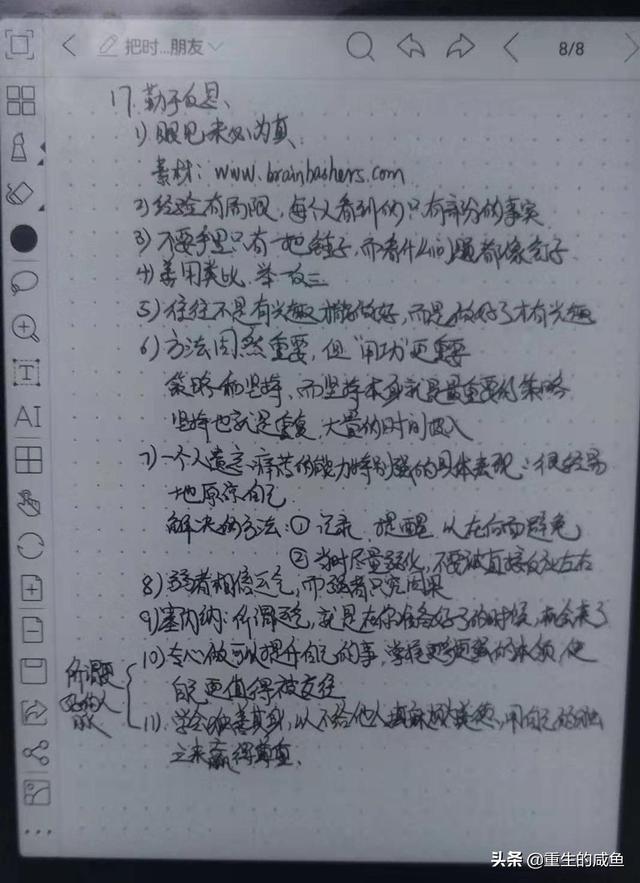 把时...朋友
8/8
17. 勤于反思、
1) 眼见未必为真、
素材: www.brainbashers.com
2) 经验有局限, 每个人看到的只有部分的事实
3) 不要手里只有一把锤子, 而看什么问题都像钉子
4) 善用类比, 举一反三
5) 往往不是有兴趣才能做好, 而是做好了才有兴趣
6) 方法固然重要, 但"用功"更重要
策略和坚持, 而坚持本身就是最重要的策略
坚持也就是重复, 大量的时间投入
7) 一个人遗忘痛苦的能力特别强的具体表现: 很轻易
地原谅自己
解决的方法: ① 记录, 提醒, 以在后面避免
② 当时尽量弱化, 不要被直接反应左右
8) 弱者相信运气, 而强者只究因果
9) 塞内纳: 所谓运气, 就是在你准备好了的时候, 机会来了
10) 专心做可以提升自己的事, 学习更多更强的本领, 使
自己更值得被交往
所谓
的人
脉
11) 学会独善其身, 以不给他人添麻烦为美德, 用自己的独
立来赢得尊重、
T
AI
头条 @重生的咸鱼